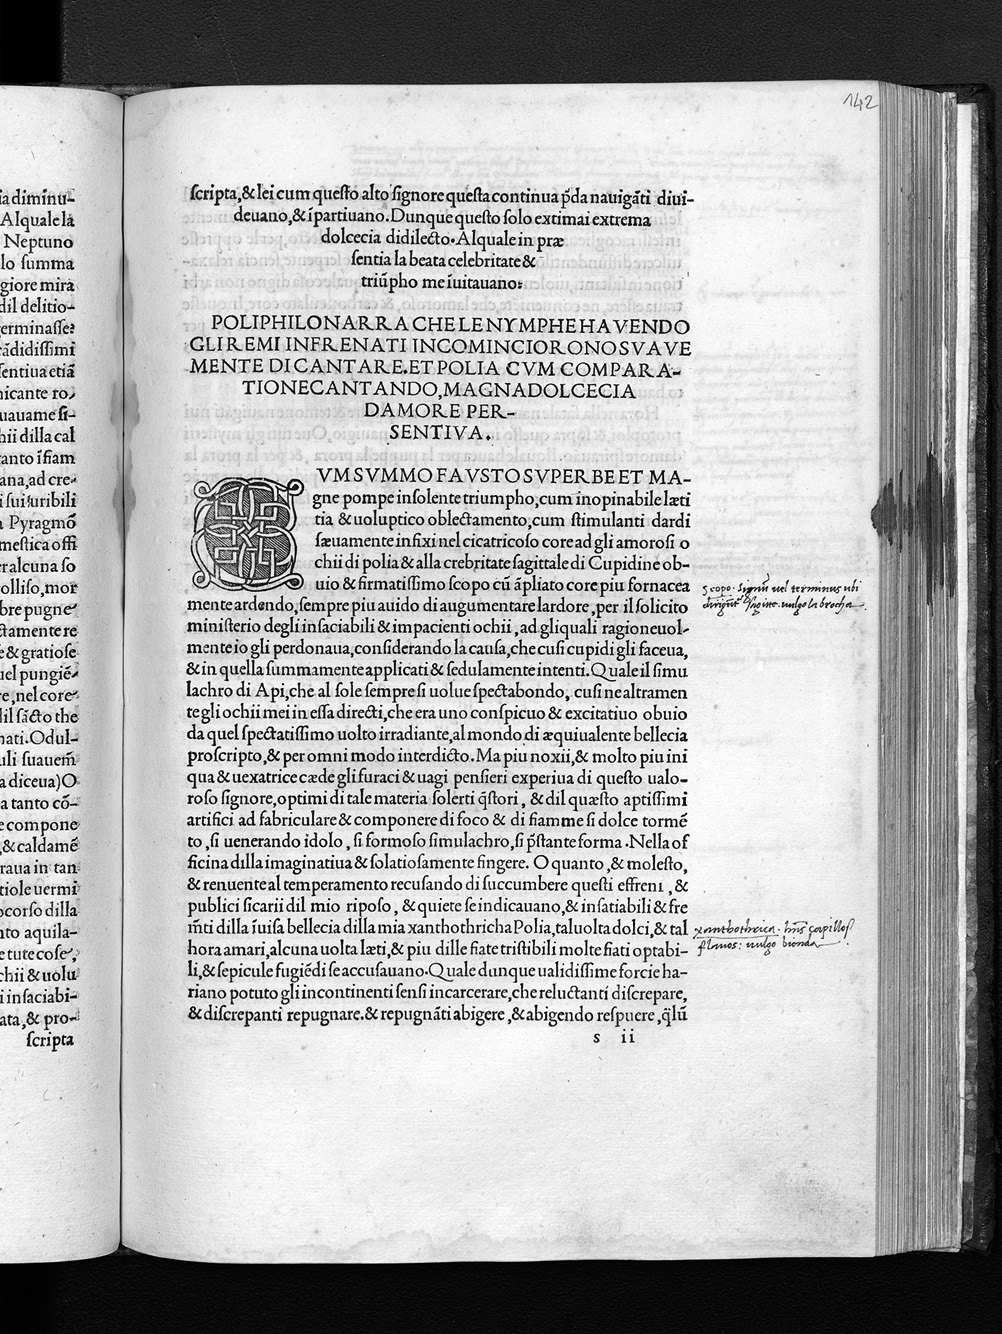 142
ia diminu-
Alquale la
Neptuno
lo summa
giore mira
dil delitio-
erminasse?
cãdidissimi
sentiua etiã
nicante ro,
uauame si-
hii dilla cal
anto ĩfiam
ana, ad cre-
i sui suribili
Pyragmõ
mestica offi
er alcuna so
olliso, mor
bre pugne
ctamente re
e & gratiose
uel pungiẽ
re, nel core
dil sãcto the
nati. Odul-
uli suauem̃
a diceua) O
a tanto cõ-
e compone
, & caldamẽ
raua in tan
tiole uermi
ocorso dilla
nto aquila-
e tute cose,
chii & uolu
i insaciabi-
ata, & pro-
scripta
scripta, & lei cum questo alto signore questa continua p̃da nauigãti diui-
deuano, & ĩpartiuano. Dunque questo solo extimai extrema
dolcecia didilecto. Alquale in præ
sentia la beata celebritate &
triũpho me ĩuitauano:
POLIPHILO NARRA CHE LE NYMPHE HAVENDO
GLI REMI INFRENATI INCOMINCIORONO SVAVE
MENTE DI CANTARE. ET POLIA CVM COMPARA-
TIONE CANTANDO, MAGNA DOLCECIA
DAMORE PER-
SENTIVA.
CVM SVMMO FAVSTO SVPERBE ET MA-
gne pompe insolente triumpho, cum inopinabile læti
tia & uoluptico oblectamento, cum stimulanti dardi
sæuamente infixi nel cicatricoso core ad gli amorosi o
chii di polia & alla crebritate sagittale di Cupidine ob-
uio & firmatissimo scopo cũ ãpliato core piu fornacea
mente ardendo, sempre piu auido di augumentare lardore, per il solicito
ministerio degli insaciabili & impacienti ochii, ad gli quali ragioneuol-
mente io gli perdonaua, considerando la causa, che cusi cupidi gli faceua,
& in quella summamente applicati & sedulamente intenti. Quale il simu
lachro di Api, che al sole sempre si uolue spectabondo, cusi ne altramen
te gli ochii mei in essa directi, che era uno conspicuo & excitatiuo obuio
da quel spectatissimo uolto irradiante, al mondo di æquiualente bellecia
proscripto, & per omni modo interdicto. Ma piu noxii, & molto piu ini
qua & uexatrice cæde gli furaci & uagi pensieri experiua di questo ualo-
roso signore, optimi di tale materia solerti q̃stori, & dil quæsto aptissimi
artifici ad fabriculare & componere di foco & di fiamme si dolce tormẽ
to, si uenerando idolo, si formoso simulachro, si p̃stante forma. Nella of
ficina dilla imaginatiua & solatiosamente fingere. O quanto, & molesto,
& renuente al temperamento recusando di succumbere questi effreni, &
publici sicarii dil mio riposo, & quiete se indicauano, & insatiabili & fre
m̃ti dilla ĩuisa bellecia dilla mia xanthothricha Polia, tal uolta dolci, & tal
hora amari, alcuna uolta læti, & piu dille fiate tristibili molte fiati optabi-
li, & sepicule fugiẽdi se accusauano. Quale dunque ualidissime forcie ha-
riano potuto gli incontinenti sensi incarcerare, che reluctanti discrepare,
& discrepanti repugnare. & repugnãti abigere, & abigendo respuere, q̃lũ
s ii
scopo. signũ uel terminus ubi
dirigunt sagitte. uulgo la brocha
xanthothrica. hñs capillos
flauos: uulgo bionda